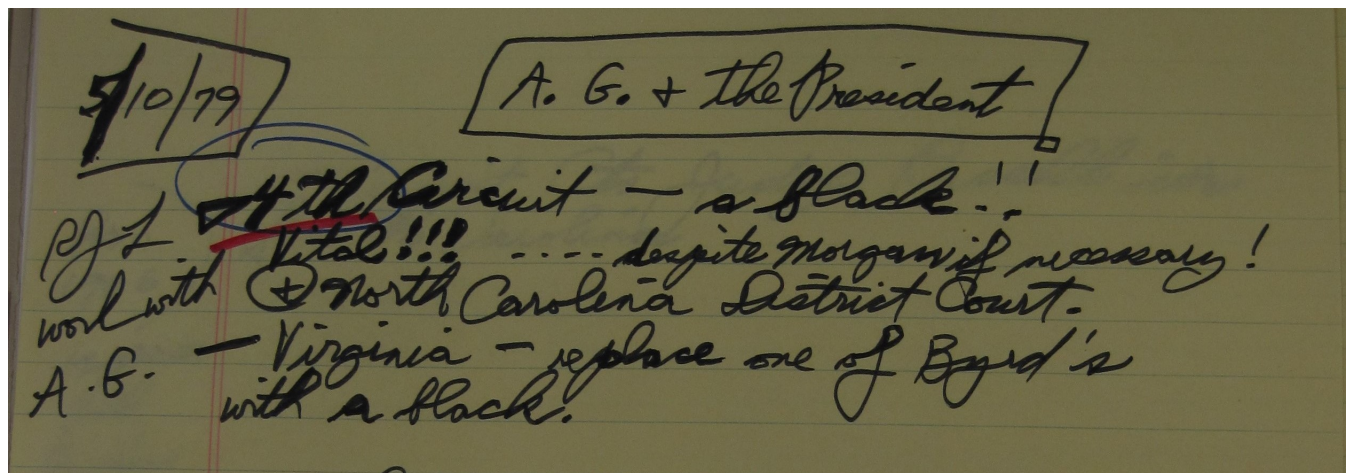 5/10/79
A. G. + the President
4th Circuit — a black!!
Vital!!! .... despite Morgan if necessary!
work with
+ North Carolina District Court.
A. G.
— Virginia — replace one of Byrd's
with a black.